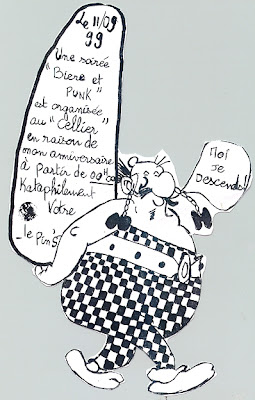 Le 11/09
99
Une soirée
"Biere et
PUNK"
est organisée
au "Cellier"
en raison de
mon anniversaire
à partir de
Kataphilement
Votre
le Pin's
Moi
je
Descends!